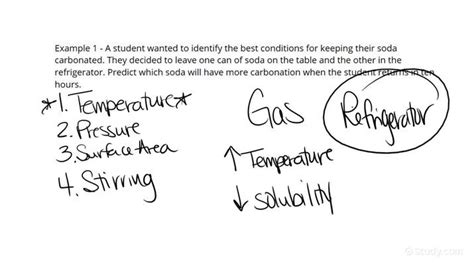 Example 1 - A student wanted to identify the best conditions for keeping their soda
carbonated. They decided to leave one can of soda on the table and the other in the
refrigerator. Predict which soda will have more carbonation when the student returns in ten
hours.
*1. Temperature*
2. Pressure
3. Surface Area
4. Stirring
Gas
↑ Temperature
↓ solubility
Refrigerator
Study.com